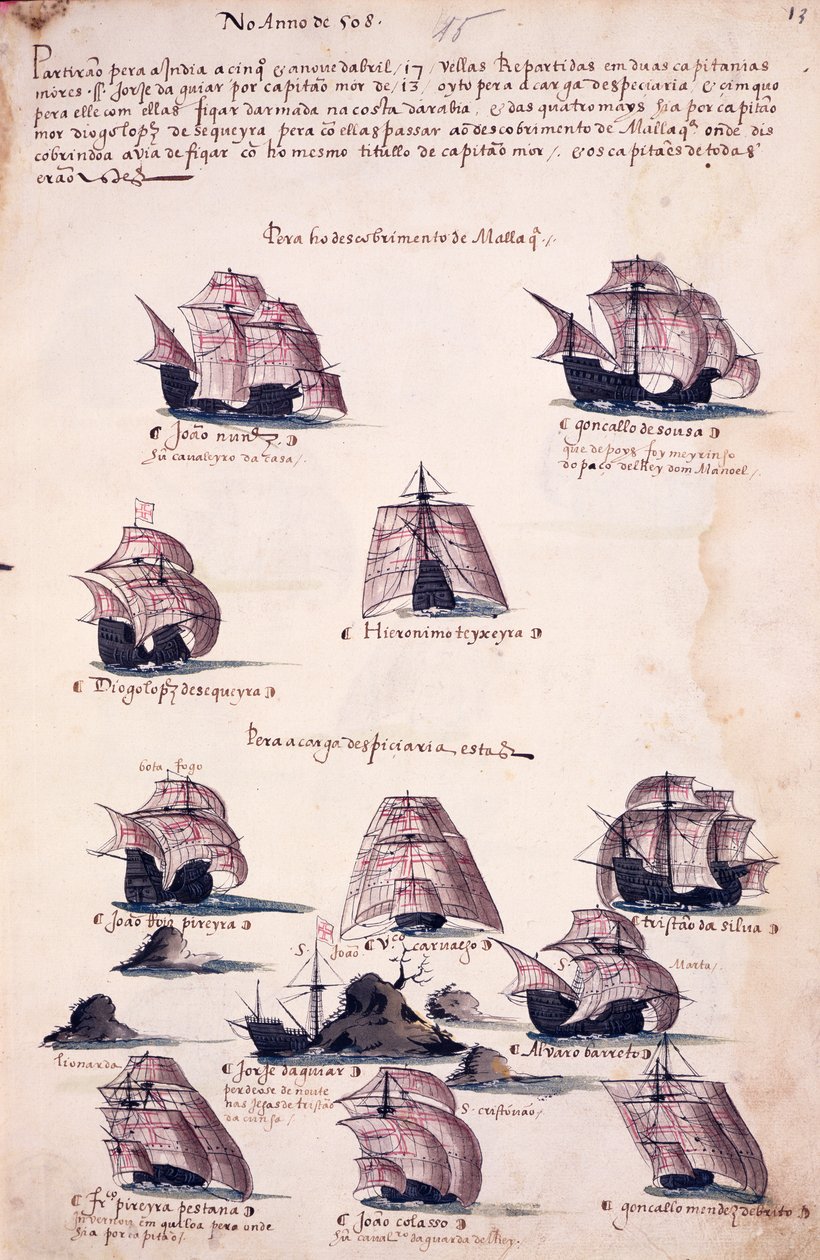 No Anno de 508.
45
13
Partirão pera a India a cinqº & a nove dabril / 17 / vellas Repartidas em duas capitanias
mores .ſſ. Jorje da guiar por capitão mor de / 13 / oyto pera a carga despeciaria / & cimquo
pera elle com ellas fiqar darmada na costa darabia, & das quatro mays hia por capitão
mor diogo lopz de sequeyra pera cõ ellas passar ao descobrimento de Mallaqª onde dis
cobrindo a avia de fiqar cõ ho mesmo titullo de capitão mor /. & os capitães de todas
erão
Pera ho descobrimento de Mallaqª /.
João nunz.
hũ cavaleyro da casa /
goncallo de sousa
que depoys foy meyrinho
do paço delRey dom Manoel /.
Diogo lopz de sequeyra
Hieronimo teyxeyra
Pera a carga despiçiaria estas
bota fogo
João pireyra
S. João
Vco carvalho
tristão da silva
S. Marta /
Alvaro barreto
lionarda
Jorje daguiar
perdeose de noute
nas Jlhas de tristão
da cunha /
S. cristóvão /
frco pireyra pestana
Jnvernou em quiloa pera onde
hia por capitão /.
João colasso
hũ cavalro da guarda delRey.
goncallo mendez de brito